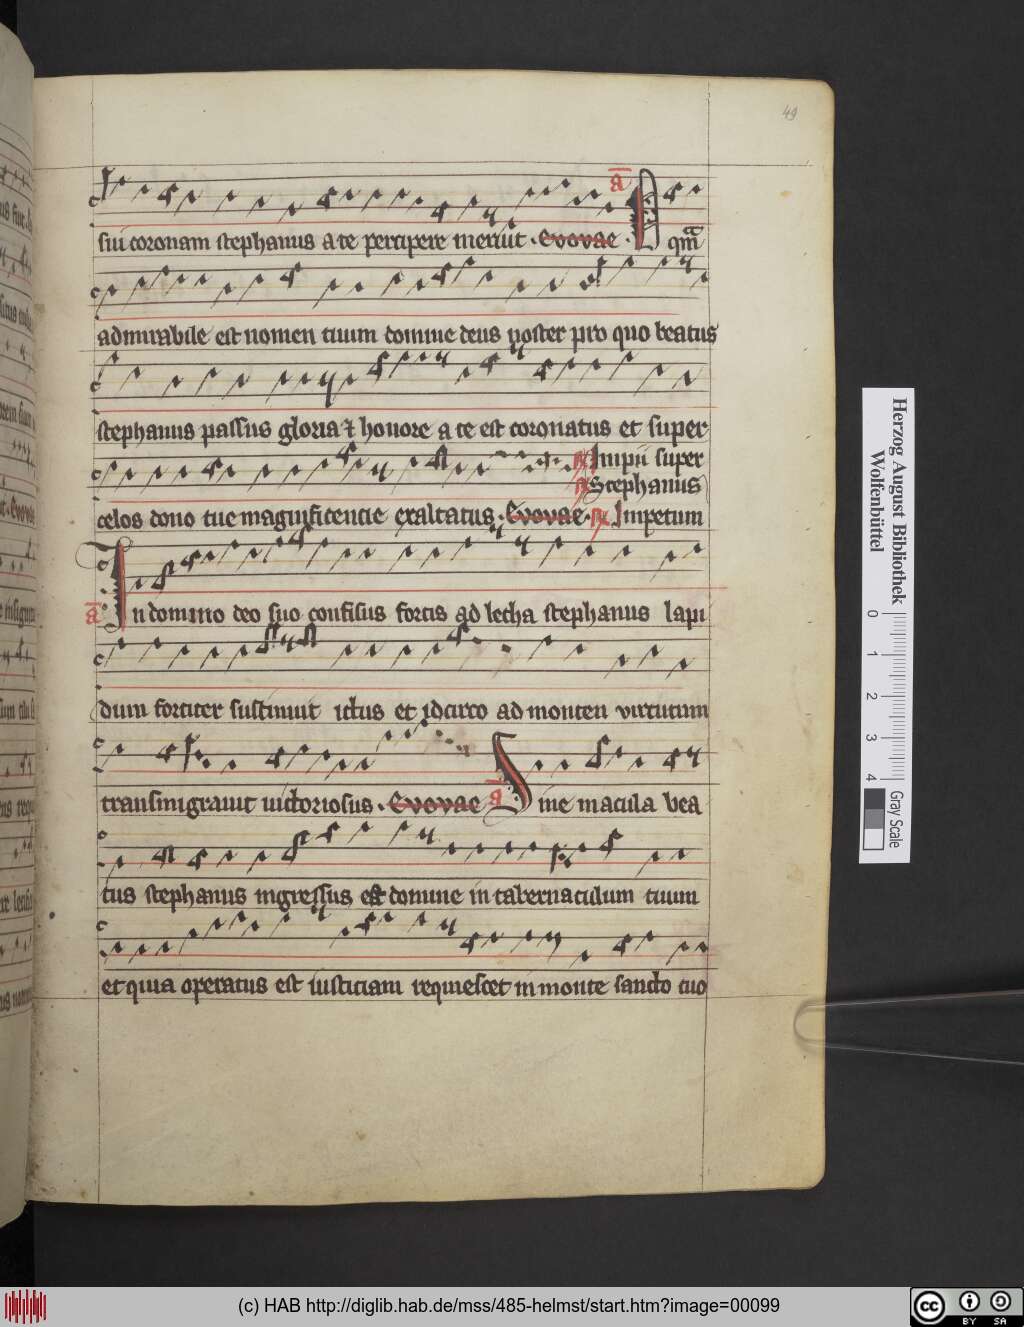 49
a
sui coronam stephanus a te percipere meruit · Evovae · O qm̄a
admirabile est nomen tuum domine deus noster pro quo beatus
stephanus passus gloria ⁊ honore a te est coronatus et super
Impii super
Stephanus
celos dono tue magnificencie exaltatus · Evovae · Impetum
a In domino deo suo confisus fortis ad lecha stephanus lapi
dum fortiter sustinuit ictus et idcirco ad montem virtutum
transmigravit victoriosus · Evovae a Sine macula bea
tus stephanus ingressus est domine in tabernaculum tuum
et quia operatus est iusticiam requiescet in monte sancto tuo
Herzog August Bibliothek
Wolfenbüttel
0 1 2 3 4
Gray Scale
(c) HAB http://diglib.hab.de/mss/485-helmst/start.htm?image=00099
cc BY SA